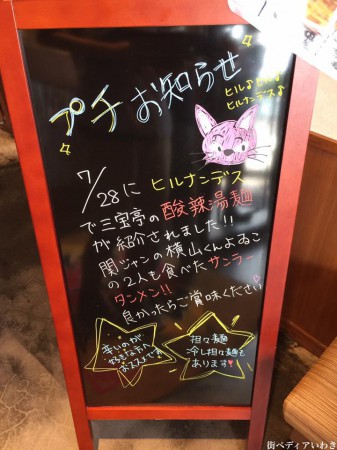 プチお知らせ
ヒル♪ヒル♪
ヒルナンデス♪
7/28に ヒルナンデス
で三宝亭の酸辣湯麺
が紹介されました!!
関ジャンの横山くんよゐこ
の2人も食べたサンラー
タンメン!!
良かったらご賞味ください
辛いのが
好きな方へ
おススメです!
担々麺
冷し担々麺も
あります♥
街ペディアいわき